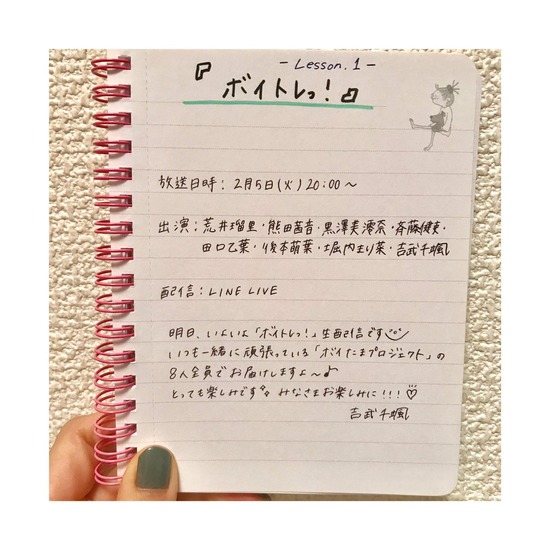 - Lesson.1 -
『ボイトレっ!』
放送日時：2月5日(火)20:00〜
出演：荒井瑠里・熊田茜音・黒澤美澪奈・斉藤健太・
田口乙葉・坂本萌菜・堀内まり菜・吉武千颯
配信：LINE LIVE
明日、いよいよ「ボイトレっ!」生配信です
いつも一緒に頑張っている「ボイたまプロジェクト」の
8人全員でお届けしますよ〜♪
とっても楽しみです みなさまお楽しみに!!!♡
吉武千颯